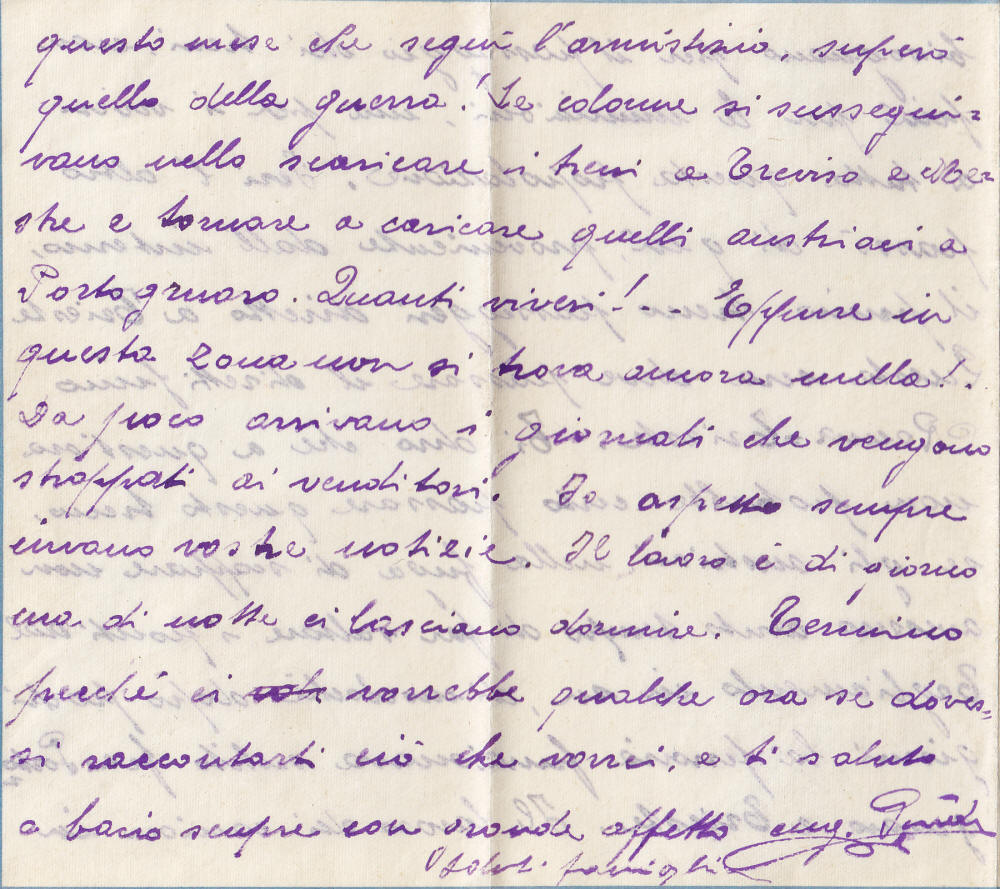 questo mese che seguì l'armistizio, superò
quello della guerra! Le colonne si sussegui=
vano nello scaricare i treni a Treviso e Me
stre e tornare a caricare quelli austriaci a
Portogruaro. Quanti viveri!... Eppure in
questa zona non si trova ancora nulla!.
Da poco arrivano i giornali che vengono
strappati ai venditori. Io aspetto sempre
invano vostre notizie. Il lavoro è di giorno
ma di notte ci lasciano dormire. Termino
perché ci vorrebbe qualche ora se doves=
si raccontarti ciò che vorrei, e ti saluto
e bacio sempre con grande affetto cug.
Saluti famiglia